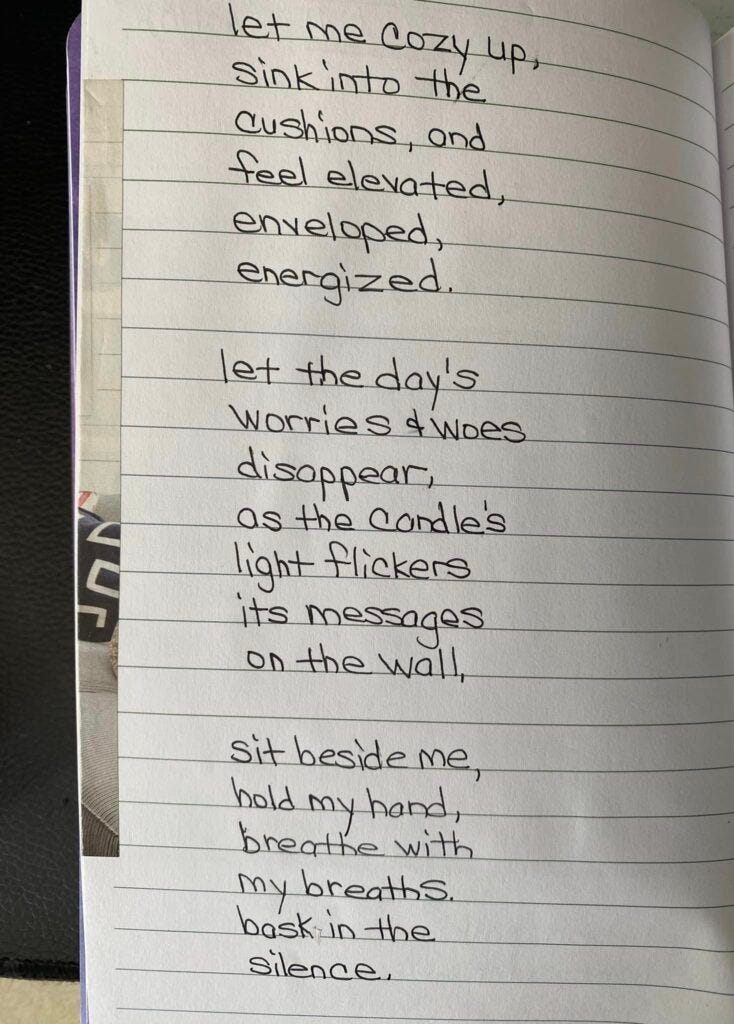 let me cozy up,
sink into the
cushions, and
feel elevated,
enveloped,
energized.
let the day's
worries & woes
disappear,
as the candle's
light flickers
its messages
on the wall,
sit beside me,
hold my hand,
breathe with
my breaths.
bask in the
silence.